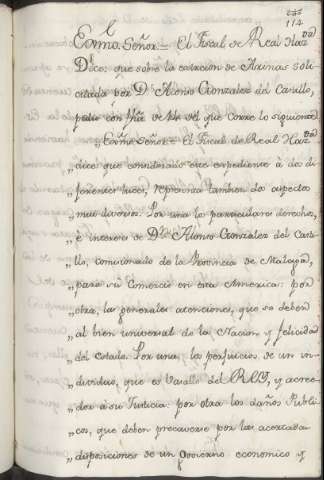 114
Exmo. Señor = El Fiscal de Real Haz.da
Dice: que sobre la estacion de Harinas soli-
citada por Dn. Alonso Gonzalez del Castillo,
pidio con fha de
el que corre lo siguiente
"Exmo. Señor = El Fiscal de Real Haz.da
"dice: que considerado este expediente á dos di-
"ferentes luces, representa tambien dos aspectos
"mui diversos. Por una los particulares derechos,
"é intereses de Dn. Alonso Gonzalez del Casti-
"llo, comisionado de la Provincia de Malaga,
"para su Comercio en esta America: por
"otra, las generales atenciones, que se deben
"al bien universal de la Nacion, y felicidad
"del estado. Por una, los perjuicios de un in-
"dividuo, que es Vasallo del REY, y acree-
"dor á su Justicia: por otra los daños Publi-
"cos, que deben precaverse por las acertadas
"disposiciones de un Govierno economico y